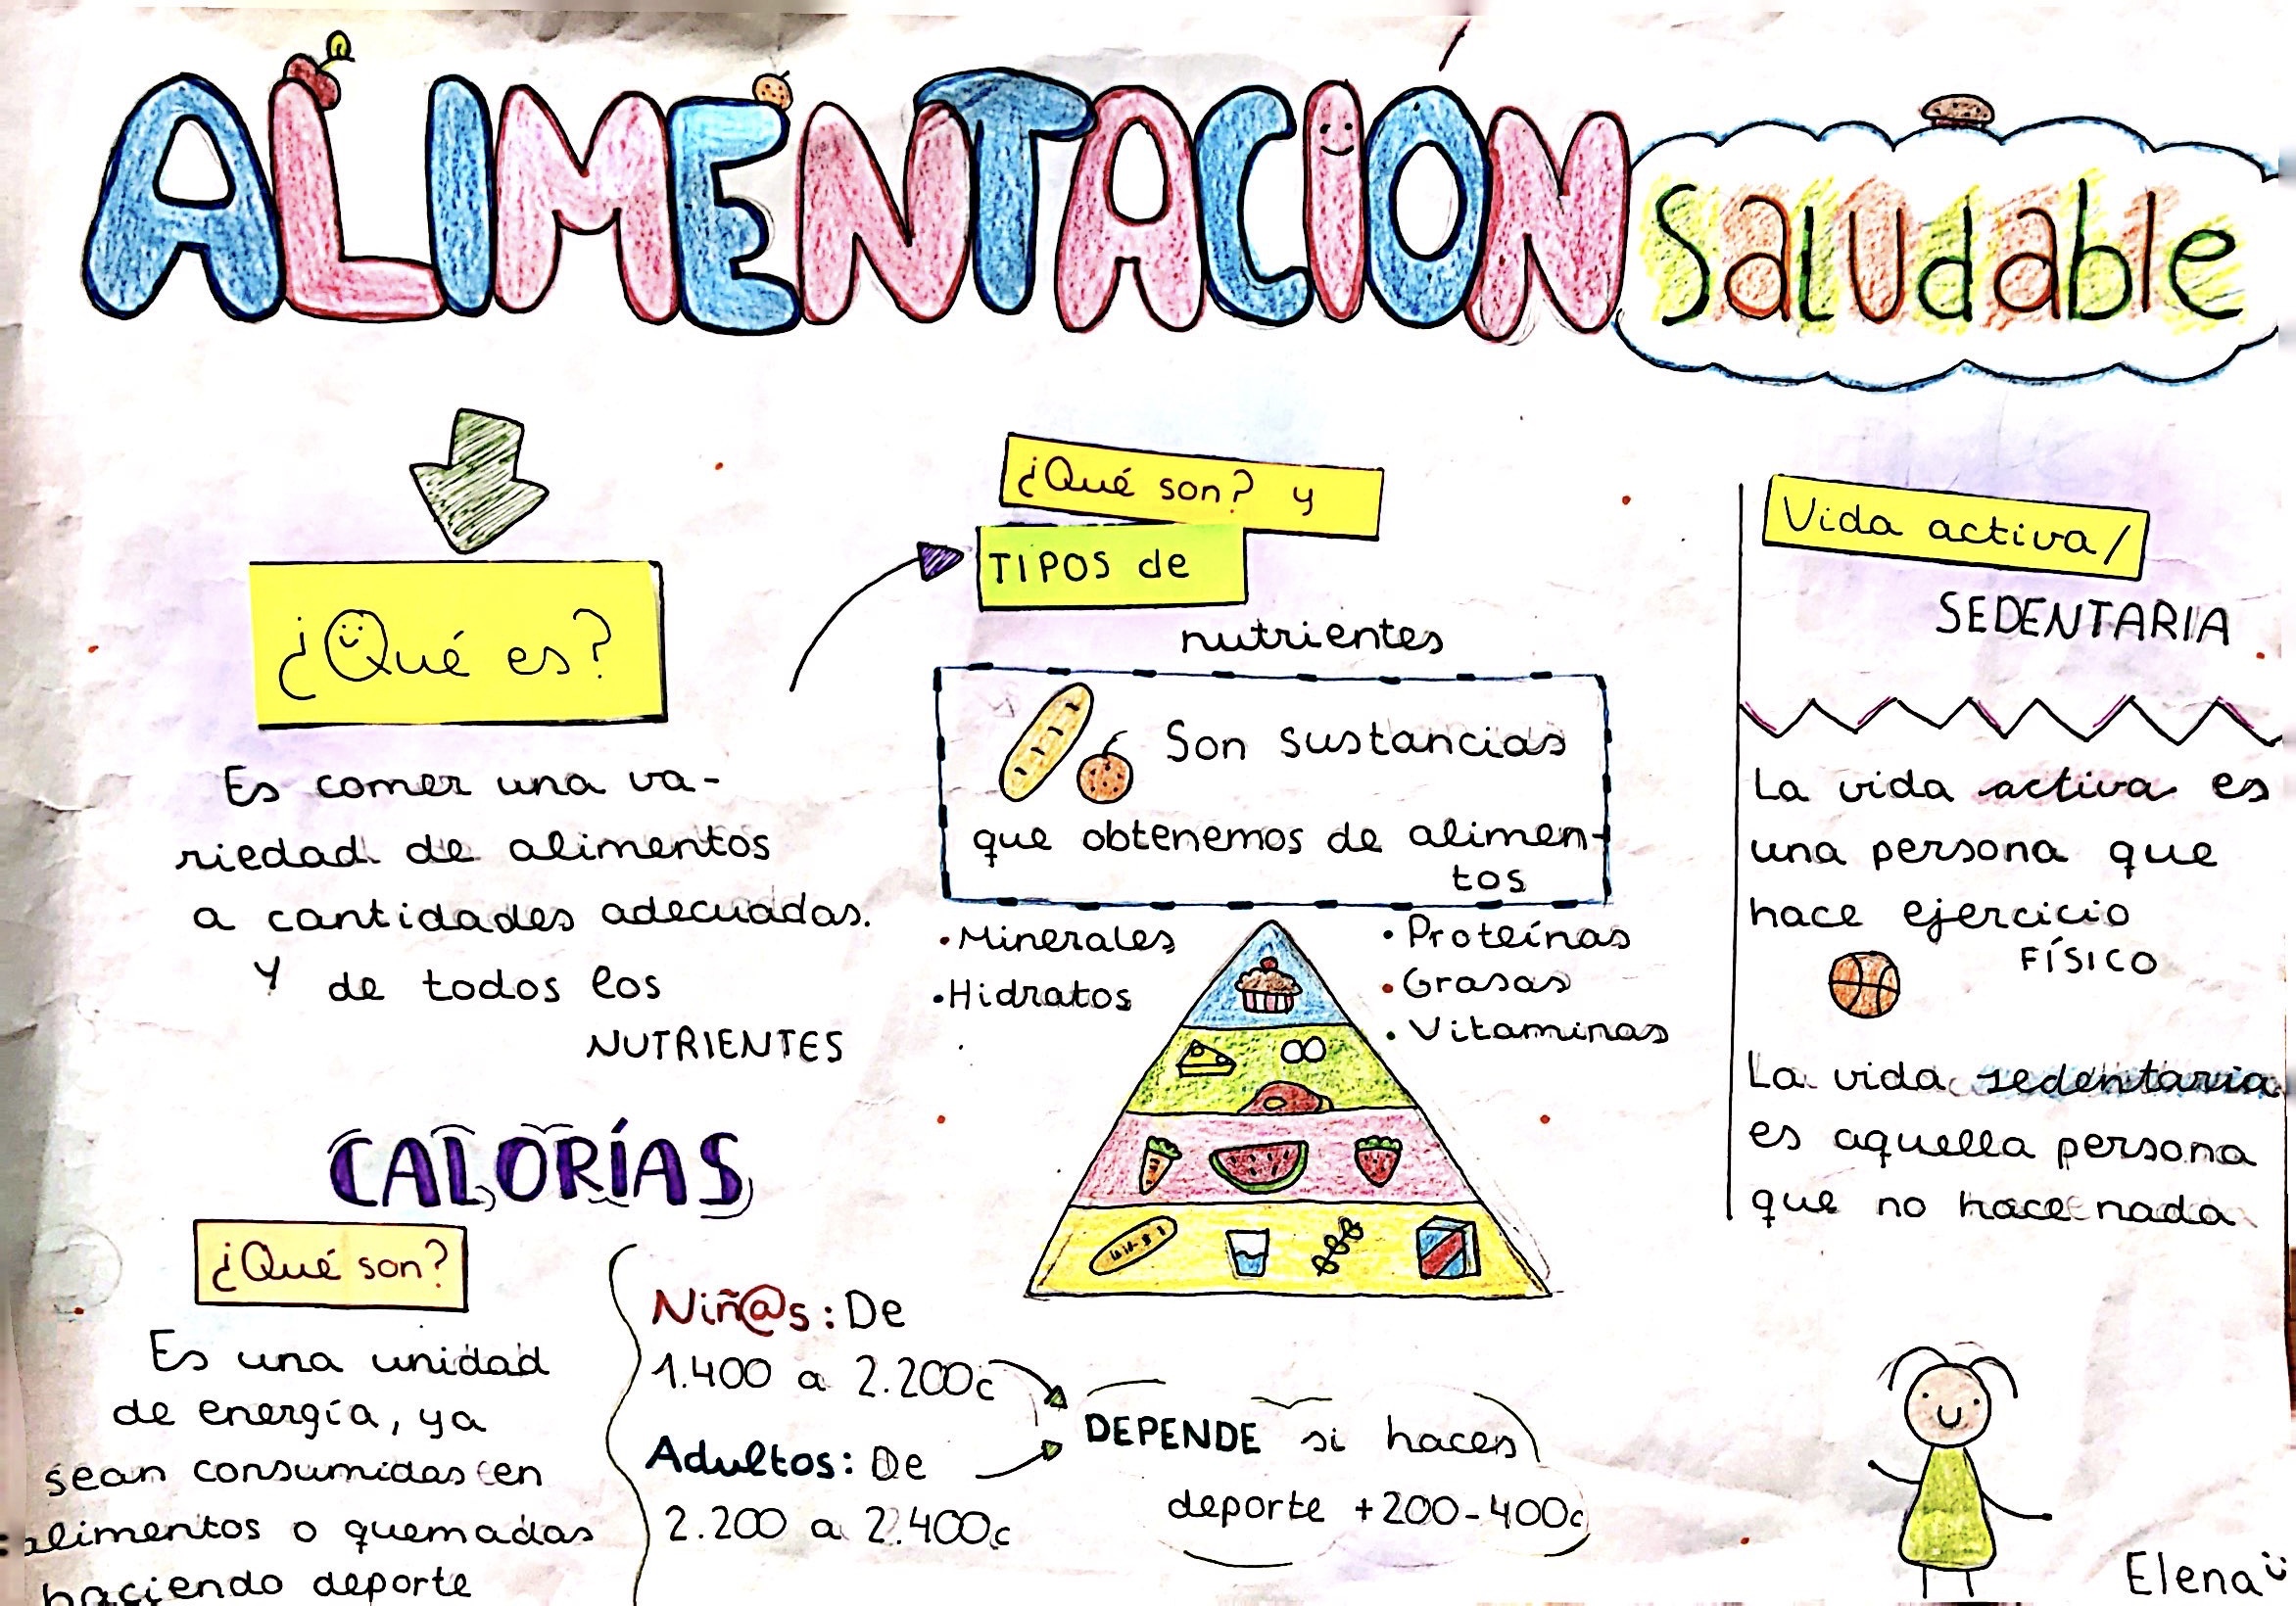 ALIMENTACIÓN saludable
¿Qué es?
Es comer una va-
riedad de alimentos
a cantidades adecuadas.
Y de todos los
NUTRIENTES
¿Qué son? y
TIPOS de
nutrientes
Son sustancias
que obtenemos de alimen-
tos
• Minerales
• Hidratos
• Proteínas
• Grasas
• Vitaminas
Vida activa/
SEDENTARIA
La vida activa es
una persona que
hace ejercicio
FÍSICO
La vida sedentaria
es aquella persona
que no hace nada
CALORÍAS
¿Qué son?
Es una unidad
de energía, ya
sean consumidas en
alimentos o quemadas
haciendo deporte
Niñ@s: De
1.400 a 2.200c
Adultos: De
2.200 a 2.400c
DEPENDE si haces
deporte +200-400c
Elena